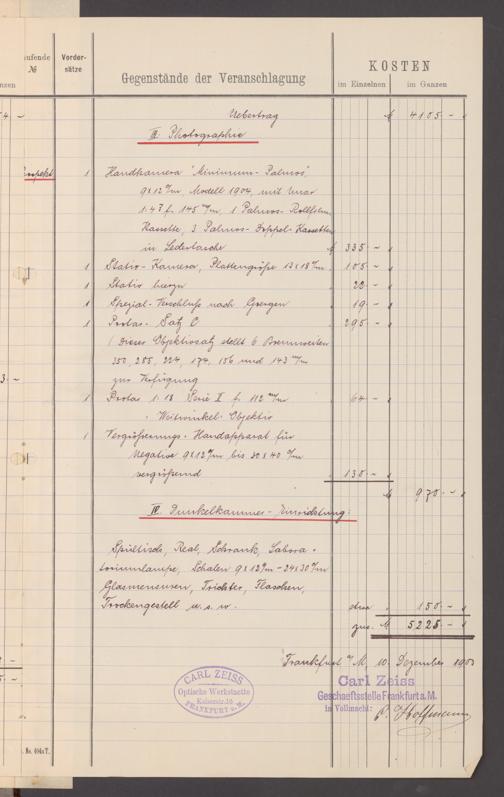 laufende
№
Vorder-
sätze
Gegenstände der Veranschlagung
KOSTEN
im Einzelnen
im Ganzen
Uebertrag 4105.-
III. Photographie
Prospekt
1 Handkamera "Minimum-Palmos"
9x12 c/m, Modell 1904, mit Unar
1:4,7 f. 145 m/m, 1 Palmos-Rollfilm-
Kassette, 3 Palmos-Doppel-Kassetten
in Ledertasche 335.-
1 Stativ-Kamera, Plattengrösse 13x18 c/m 105.-
1 Stativ hierzu 22.-
1 Spezial-Verschluss nach 19.-
1 Protar-Satz C 295.-
(Dieser Objektivsatz stellt 6 Brennweiten
350, 285, 224, 174, 156 und 143 m/m
zur Verfügung
1 Protar 1:18 Serie V f. 112 m/m 64.-
Weitwinkel-Objektiv
1 Vergrösserungs-Handapparat für
Negative 9x12 c/m bis 30x40 c/m
vergrössernd 130.-
970.-
IV. Dunkelkammer-Einrichtung:
Spültisch, Real, Schrank, Labora-
toriumlampe, Schalen 9x12 c/m - 24x30 c/m
Glasmensuren, Trichter, Flaschen,
Trockengestell u.s.w. 150.-
zus. 5225.-
Frankfurt a/M, 10. Dezember
CARL ZEISS
Optische Werkstaette
Kaiserstr. 16
FRANKFURT a. M.
Carl Zeiss
Geschaeftsstelle Frankfurt a. M.
in Vollmacht: P. Hoffmann